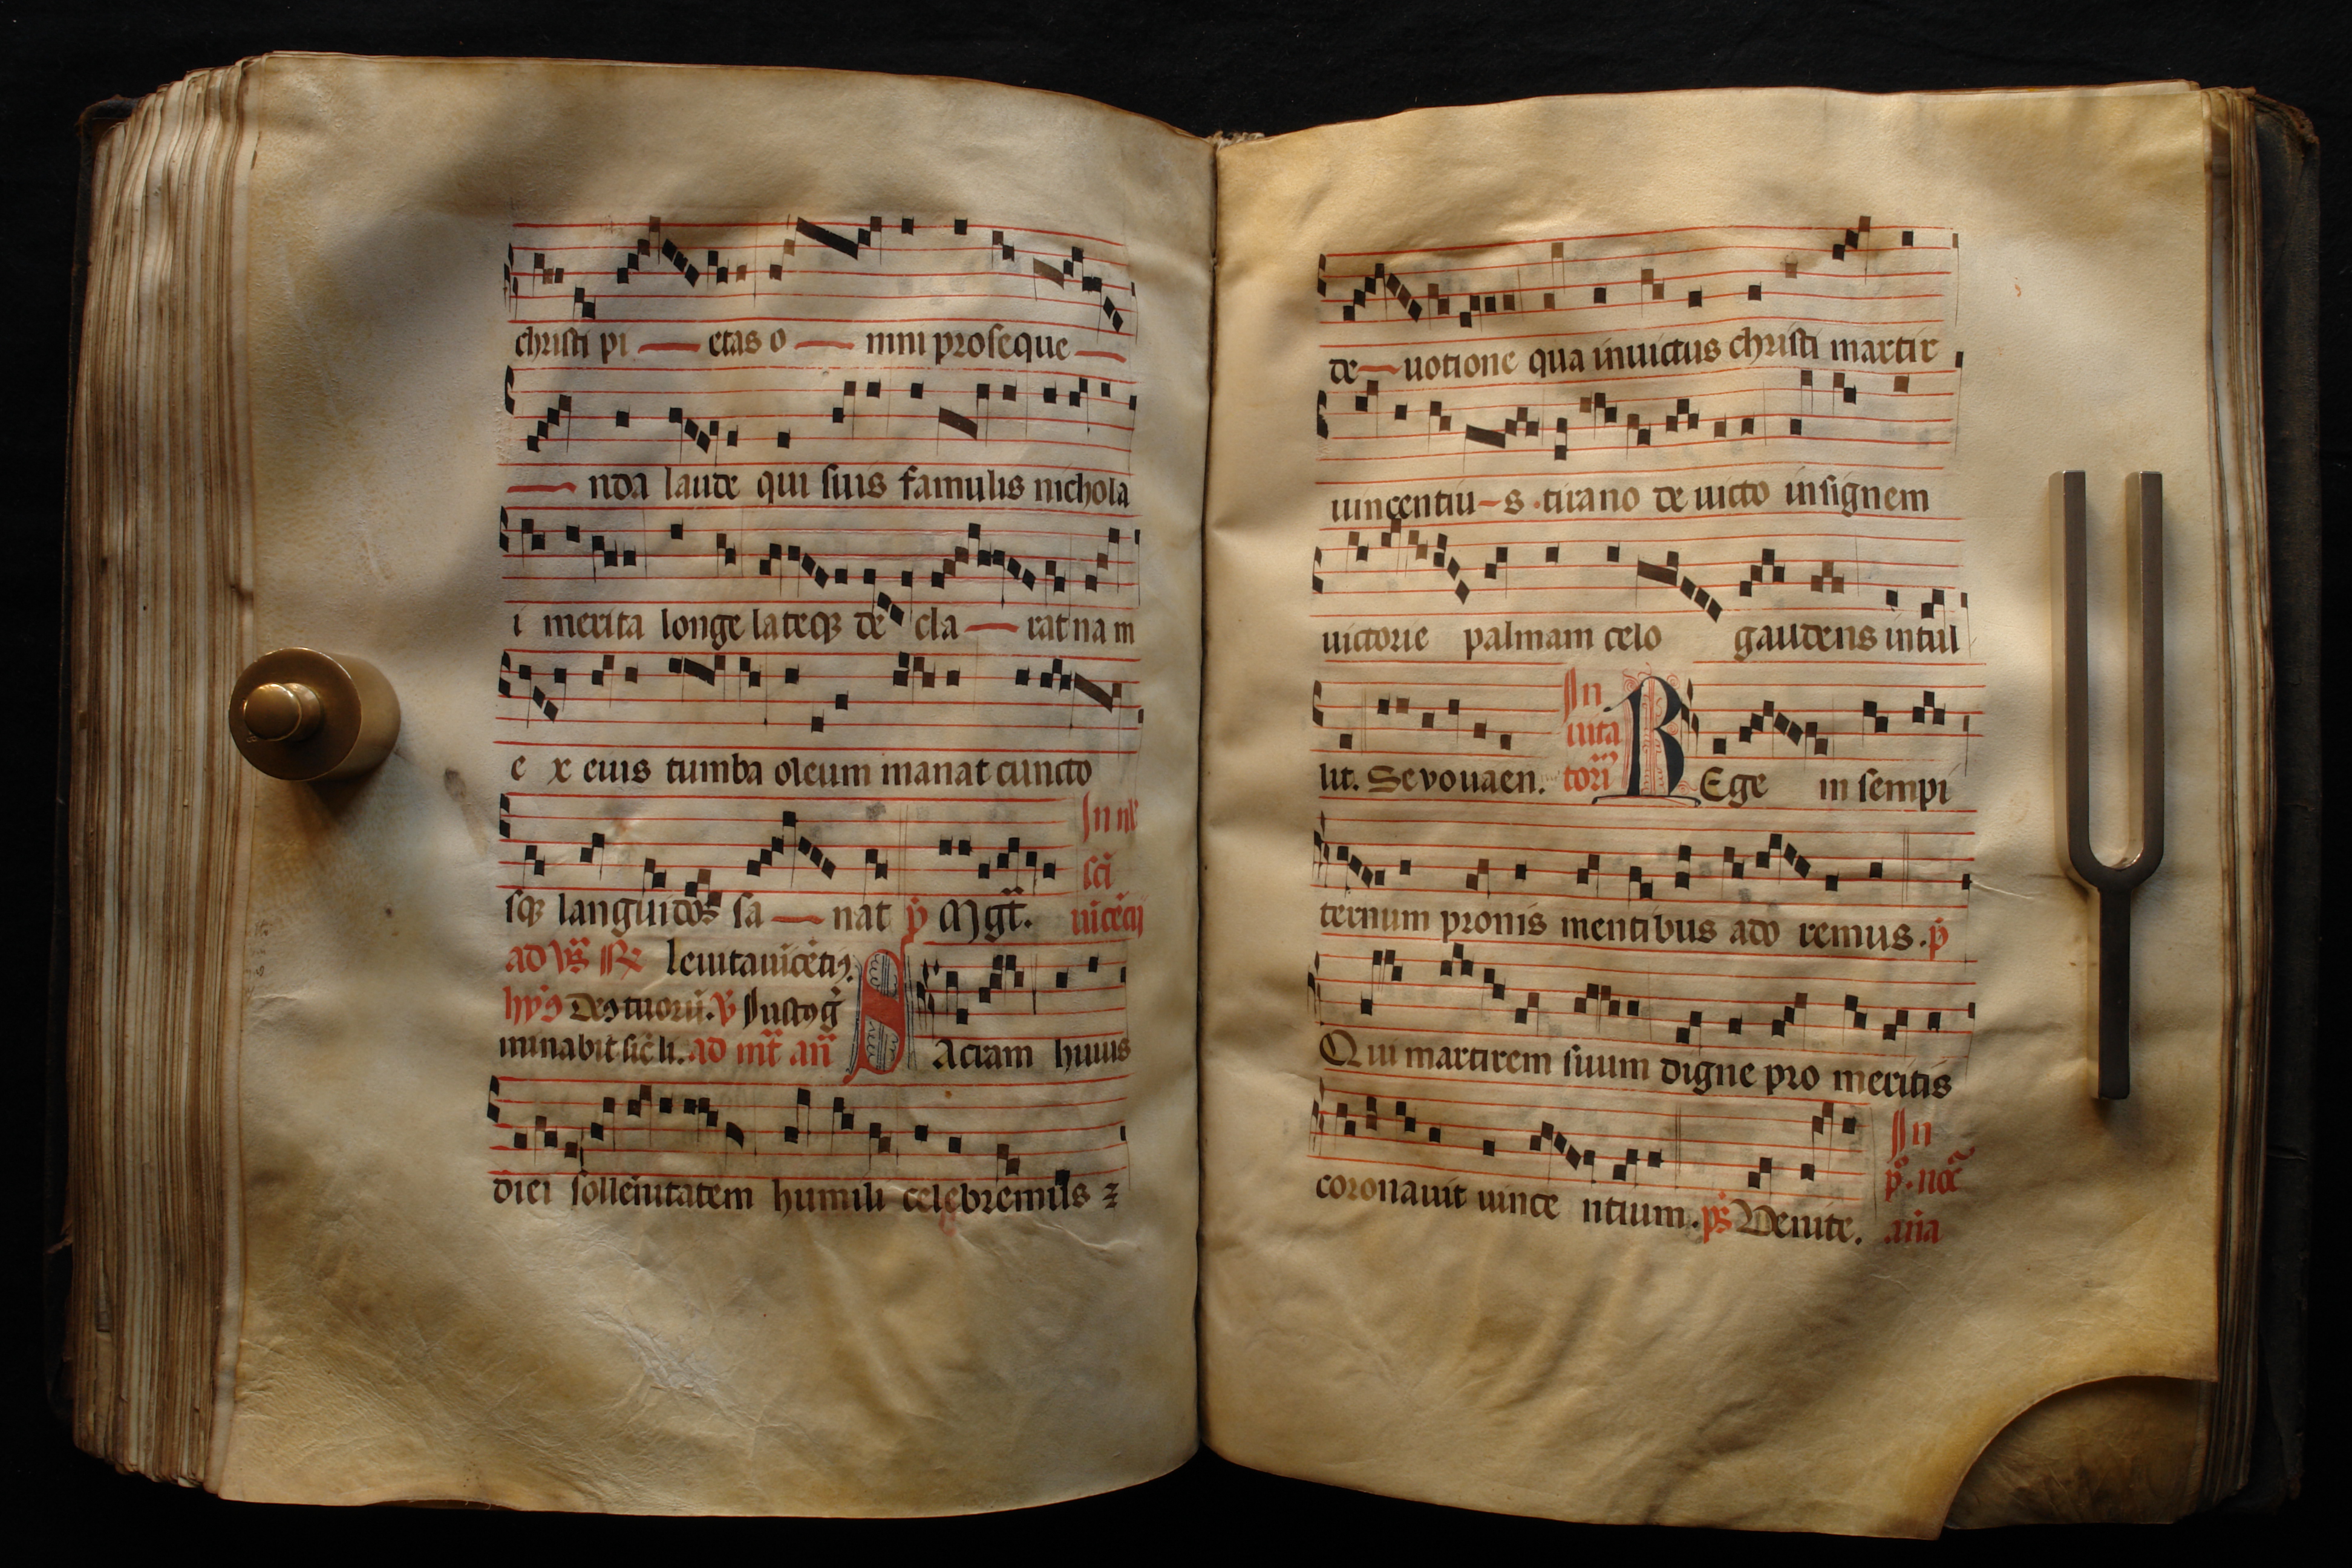 christi pi — etas o — mni proseque —
— nda laude qui suis famulis nichola
i merita longe lateqꝫ de cla — rat nam
e x eius tumba oleum manat cuncto
In nł
sqꝫ languidos sa — nat p̄ Mgt̄.
sci
uīcētij
ad vs̄ ℟ leuita uicēti9.
hy9 De9 tuorū. v̄ Iust9 ḡ
minabit sic̄ li. ad mt̄ an̄ SAcram huius
diei sollēnitatem humili celebremus ⁊
de — uotione qua inuictus christi martir
uincentiu — s tirano deuicto insignem
uictorie palmam celo gaudens intul
lit. Sevouaen. In uita tori̅ REge in sempi
ternum pronis mentibus ado remus. p̄
Qui martirem suum digne pro meritis
coronauit uince ntium. ps̄ Venite.
In
p̊. noc̄
an̄a